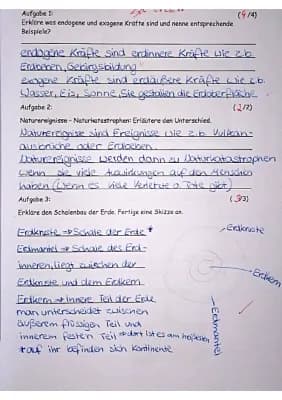 Aufgabe 1:
(4/4)
Erkläre was endogene und exogene Kräfte sind und nenne entsprechende
Beispiele?
endogene Kräfte sind erdinnere Kräfte wie z.b.
Erdbeben, Gebirgsbildung
exogene Kräfte sind erdäußere Kräfte wie z.b.
Wasser, Eis, Sonne, Sie gestalten die Erdoberfläche
Aufgabe 2:
(2/2)
Naturereignisse - Naturkatastrophen: Erläutere den Unterschied.
Naturereignise sind Ereignisse wie z.b. Vulkan-
ausbrüche oder Erdbeben.
Naturereignisse werden dann zu Naturkatastrophen
wenn sie viele Auswirkungen auf den Menschen
haben (Wenn es viele Verletzte o. Tote gibt)
Aufgabe 3:
(3/3)
Erkläre den Schalenbau der Erde. Fertige eine Skizze an.
Erdkruste => Schale der Erde *
Erdkruste
Erdmantel => Schale des Erd-
inneren, liegt zwischen der
Erdkern
Erdkruste und dem Erdkern.
Erdkern => innere Teil der Erde
Erdmantel
man unterscheidet zwischen
äußerem flüssigen Teil und
innerem festen Teil => dort ist es am heißesten
* auf ihr befinden sich Kontinente